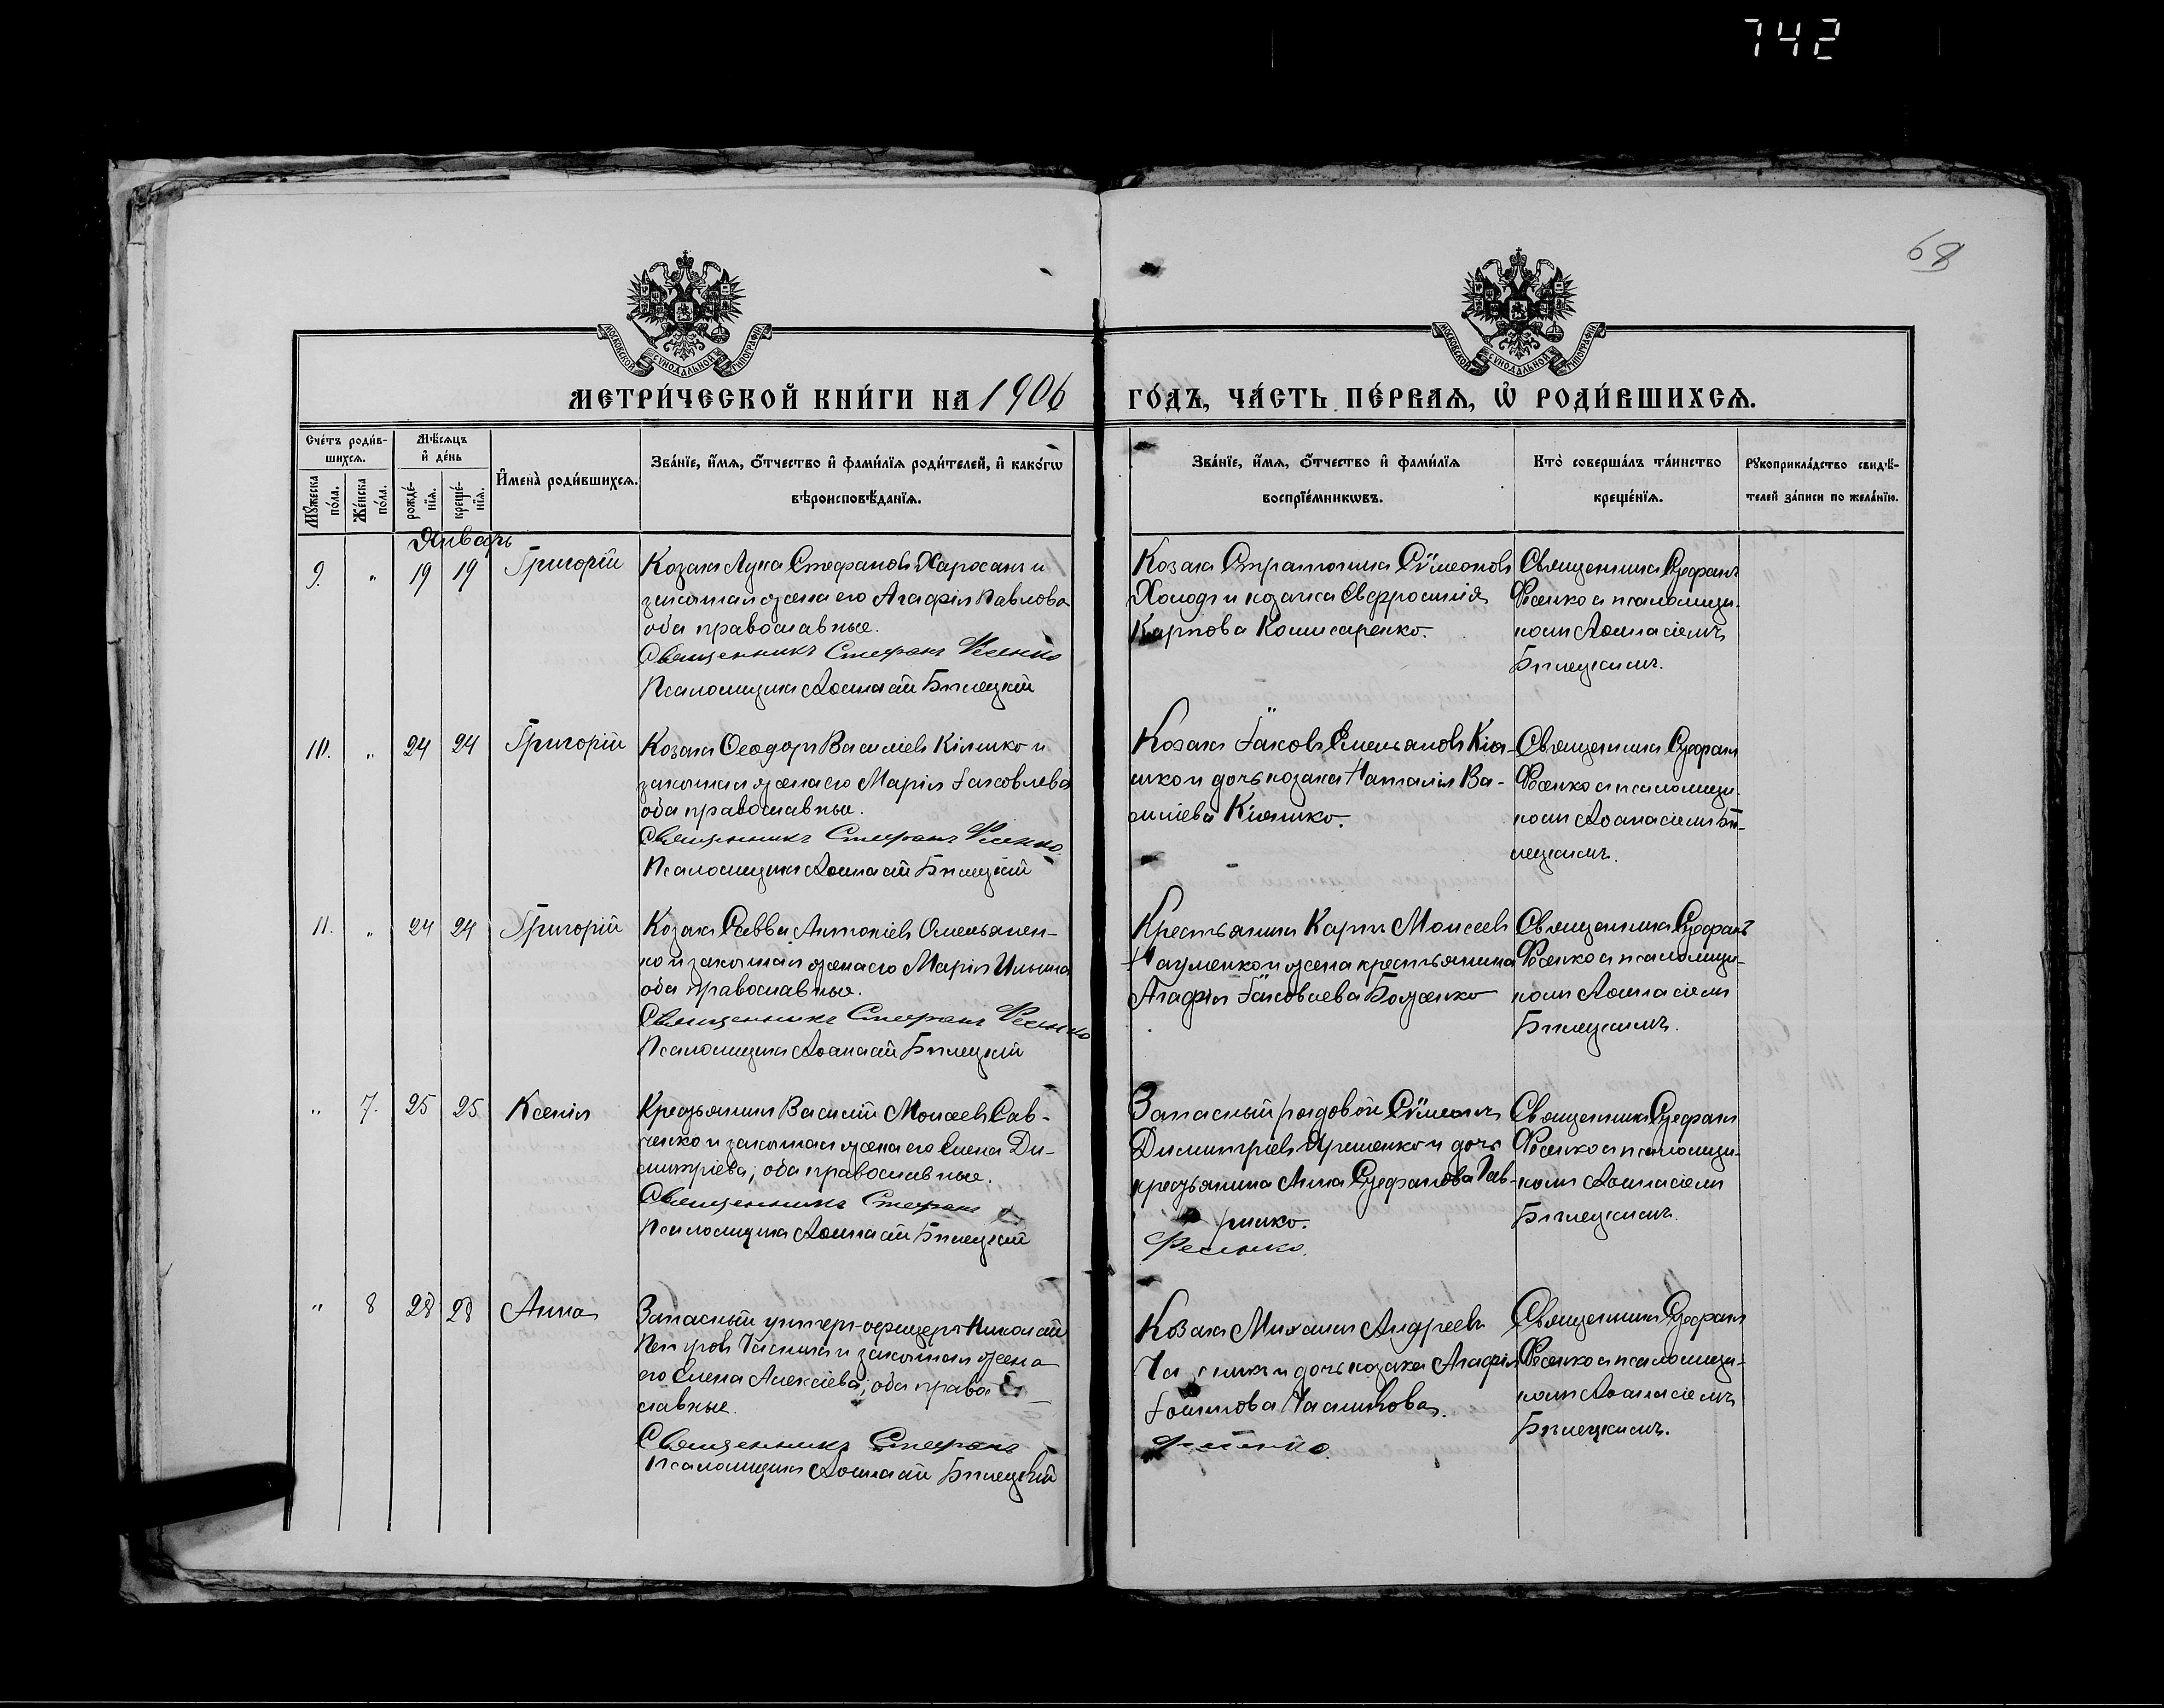 742
68
МОСКОВСКОЙ СѴНОДАЛЬНОЙ ТИПОГРАФІИ
МОСКОВСКОЙ СѴНОДАЛЬНОЙ ТИПОГРАФІИ
МЕТРИ́ЧЕСКОЙ КНИ́ГИ НА 1906
ГО́ДЪ, ЧА́СТЬ ПЕ́РВАѦ, Ѡ҆ РОДИ́ВШИХСѦ.
Сче́тъ роди́в-
шихсѧ.
Мꙋ́жеска по́ла.
Же́нска по́ла.
Мѣ́сѧцъ
и҆ де́нь
рожде́-
нїѧ.
креще́-
нїѧ.
И҆мена̀ роди́вшихсѧ.
Зва́нїе, и҆́мѧ, ѻ҆́тчество и҆ фами́лїѧ роди́телей, и҆ како́гѡ
вѣроисповѣ́данїѧ.
Зва́нїе, и҆́мѧ, ѻ҆́тчество и҆ фами́лїѧ
воспрїе́мникѡвъ.
Кто̀ соверша́лъ та́инство
креще́нїѧ.
Рꙋкоприкла́дство свидѣ́-
телей за́писи по жела́нїю.
Январь
9. " 19 19 Григорій
Козакъ Лука Стефановъ Харосахъ и
законная жена его Агафія Павлова
оба православные.
Священникъ Стефанъ Фесенко
Псаломщикъ Аѳанасій Билецкій
Козакъ Стратоникъ Сѷмеоновъ
Холодъ и козачка Евфросинія
Карпова Комисаренко.
Священникъ Стефанъ
Фесенко съ псаломщи-
комъ Аѳанасіемъ
Билецкимъ.
10. " 24 24 Григорій
Козакъ Ѳеодоръ Василіевъ Кіяшко и
законная жена его Марія Іаковлева
оба православные.
Священникъ Стефанъ Фесенко.
Псаломщикъ Аѳанасій Билецкій
Козакъ Іаковъ Емельяновъ Кія-
шко и дочь козака Наталія Ва-
силіева Кіяшко.
Священникъ Стефанъ
Фесенко съ псаломщи-
комъ Аѳанасіемъ Би-
лецкимъ.
11. " 24 24 Григорій
Козакъ Савва Антоніевъ Омельянен-
ко и законная жена его Марія Ильина
оба православные.
Священникъ Стефанъ Фесенко
Псаломщикъ Аѳанасій Билецкій
Крестьянинъ Карпъ Моисеевъ
Науменко и жена крестьянина
Агафія Іаковлева Боженко
Священникъ Стефанъ
Фесенко съ псаломщи-
комъ Аѳанасіемъ
Билецкимъ.
" 7. 25 25 Ксенія
Крестьянинъ Василій Моисеевъ Сав-
ченко и законная жена его Елена Ди-
митріева, оба православные.
Священникъ Стефанъ
Псаломщикъ Аѳанасій Билецкій
Запасный рядовой Сѷмеонъ
Димитріевъ Яременко и дочь
крестьянина Анна Стефанова Гав-
ришко.
Фесенко.
Священникъ Стефанъ
Фесенко съ псаломщи-
комъ Аѳанасіемъ
Билецкимъ.
" 8 28 28 Анна
Запасный унтеръ-офицеръ Николай
Петровъ Часникъ и законная жена
его Елена Алексіева; оба право
славные.
Священникъ Стефанъ
Псаломщикъ Аѳанасій Билецкій
Козакъ Михаилъ Андреевъ
Часникъ и дочь козака Агафія
Іоаннова Часникова.
Фесенко.
Священникъ Стефанъ
Фесенко съ псаломщи-
комъ Аѳанасіемъ
Билецкимъ.